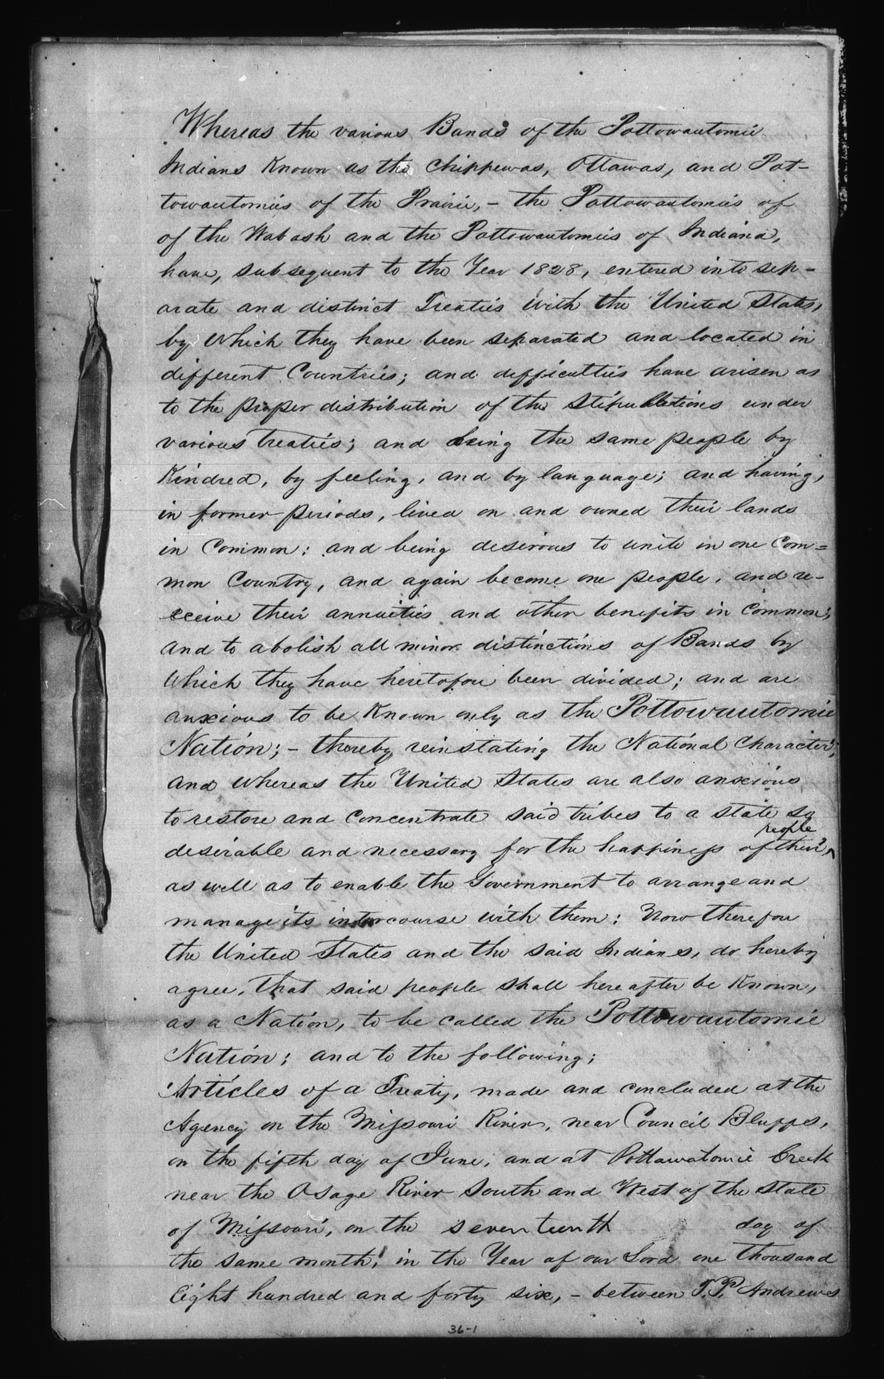 Whereas the various Bands of the Pottowautomie
Indians Known as the Chippewas, Ottawas, and Pot-
towautomies of the Prairie, - the Pottowautomies of
of the Wabash and the Pottowautomies of Indiana,
have, subsequent to the Year 1828, entered into sep-
arate and distinct Treaties with the United States,
by Which they have been separated and located in
different Countries; and difficulties have arisen as
to the proper distribution of the stipulations under
various treaties; and being the same people by
Kindred, by feeling, and by language; and having,
in former periods, lived on and owned their lands
in Common; and being desirous to unite in one Com=
mon Country, and again become one people, and re-
ceive their annuities and other benefits in Common;
and to abolish all minor distinctions of Bands by
Which they have heretofore been divided; and are
anxious to be Known only as the Pottowautomie
Nation; - thereby reinstating the National Character;
and Whereas the United States are also anxious
to restore and concentrate said tribes to a state so
people
desirable and necessary for the happiness of their ^
as well as to enable the Government to arrange and
manage its intercourse with them: Now therefore
the United States and the said Indians, do hereby
agree, that said people shall hereafter be Known,
as a Nation, to be called the Pottowautomie
Nation; and to the following;
Articles of a Treaty, made and concluded at the
Agency on the Missouri River, near Council Bluffs,
on the fifth day of June, and at Pottawatomie Creek
near the Osage River South and West of the State
of Missouri, on the seventeenth day of
the same month, in the Year of our Lord one thousand
Eight hundred and forty six, - between T.P. Andrews
36-1